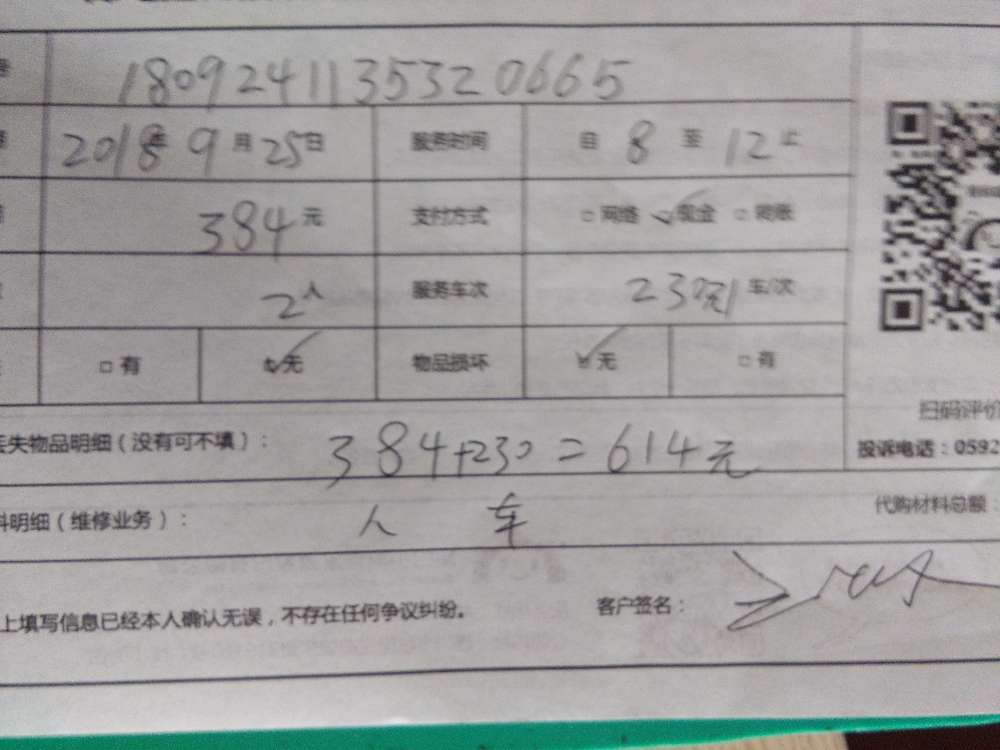 180924113532 0665
2018年9月25日 服务时间 自 8 至 12 止
384元 支付方式 网络 现金 转账
2人 服务车次 230元/ 车/次
有 无 物品损坏 无 有
扫码评价
丢失物品明细(没有可不填): 384+230=614元
投诉电话:0592
料明细(维修业务): 人 车
代购材料总额:
上填写信息已经本人确认无误,不存在任何争议纠纷。 客户签名: